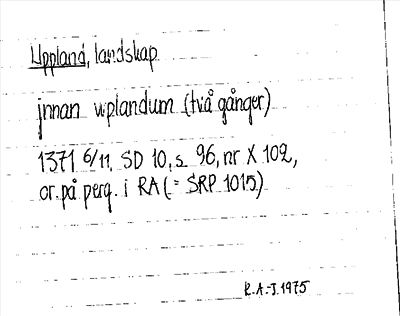 Uppland, landskap
jnnan uplandum (två gånger)
1371 6/11, SD 10, s 96, nr X 102,
or. på perg. i RA (= SRP 1015)
R.A.-J. 1975